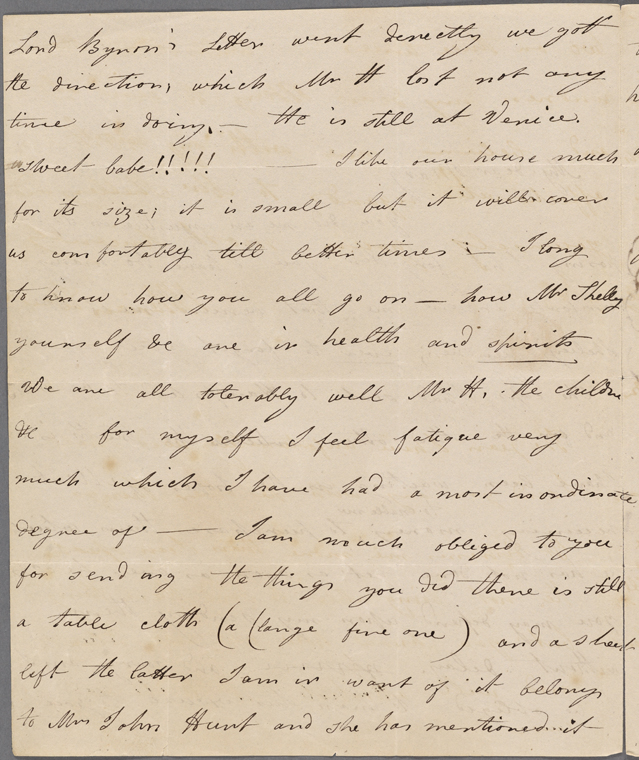 Lord Byron's Letter went derectly we got
the direction, which Mr H lost not any
time in doing, — He is still at Venice.
"sweet babe!!!!! — I like our house much
for its size; it is small but it will cover
us comfortably till better times — I long
to know how you all go on — how Mr Shelly
yourself &c are in health and spirits
We are all tolerably well Mr H, the childn
&c for myself I feel fatigue very
much which I have had a most inordinate
degree of — I am much obliged to you
for sending the things you did there is still
a table cloth (a (large fine one) and a sheet
left the latter I am in want of it belongs
to Mrs John Hunt and she has mentioned it